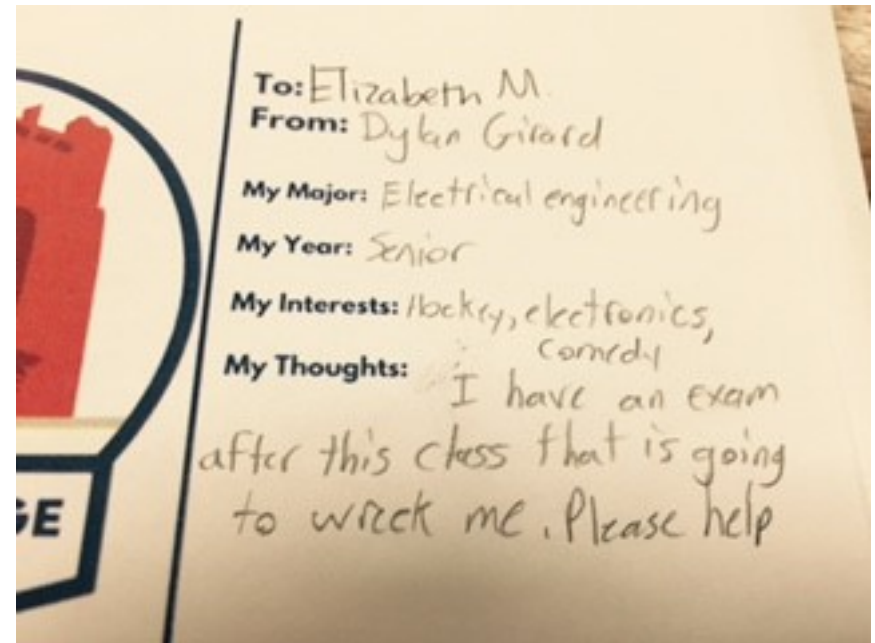 To: Elizabeth M.
From: Dylan Girard
My Major: Electrical engineering
My Year: Senior
My Interests: Hockey, electronics,
comedy
My Thoughts:
I have an exam
after this class that is going
to wreck me. Please help
GE